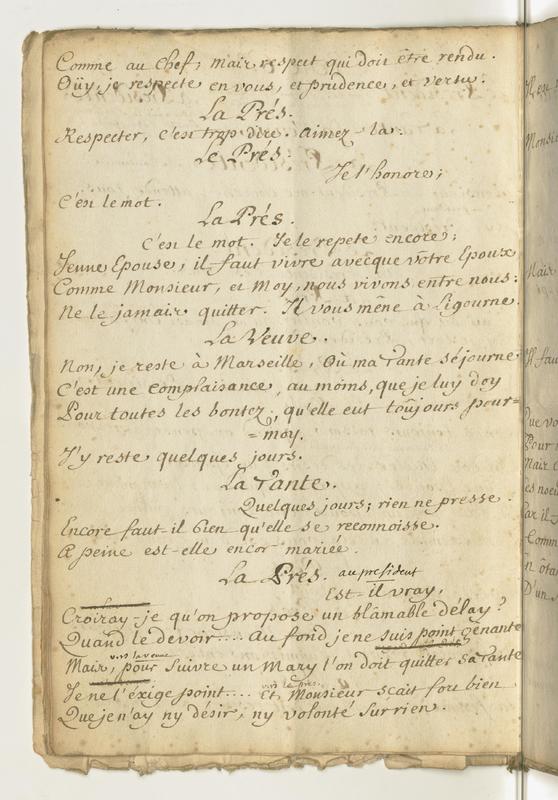 Comme au Chef; mais respect qui doit être rendu.
Oüy, je respecte en vous, et prudence, et vertu.
La Prés.
Respecter, c'est trop dire. aimez-la.
Le Prés.
Je l'honore;
C'est le mot.
La Prés.
C'est le mot. Je le repete encore;
Jeune Epouse, il faut vivre avecque vôtre Epoux
Comme Monsieur, et Moy, nous vivons entre nous:
Ne le jamais quitter. Il vous mêne à Ligourne.
La Veuve.
Non, je reste à Marseille, Où ma Tante séjourne
C'est une complaisance, au moins, que je luy doy
Pour toutes les bontez, qu'elle eut toûjours pour=
=moy.
J'y reste quelques jours.
La Tante.
Quelques jours; rien ne presse.
Encore faut-il bien qu'elle se reconnoisse.
A peine est-elle encor mariée.
La Prés. au president
Est-il vray,
Croiray-je qu'on propose un blâmable délay?
Quand le devoir.... Au fond je ne suis point gênante
vers la veuve
Mais, pour suivre un Mary l'on doit quitter sa Tante
vers le pres.
Je ne l'éxige point.... Et, Monsieur sçait fort bien
Que je n'ay ny désir, ny volonté sur rien.